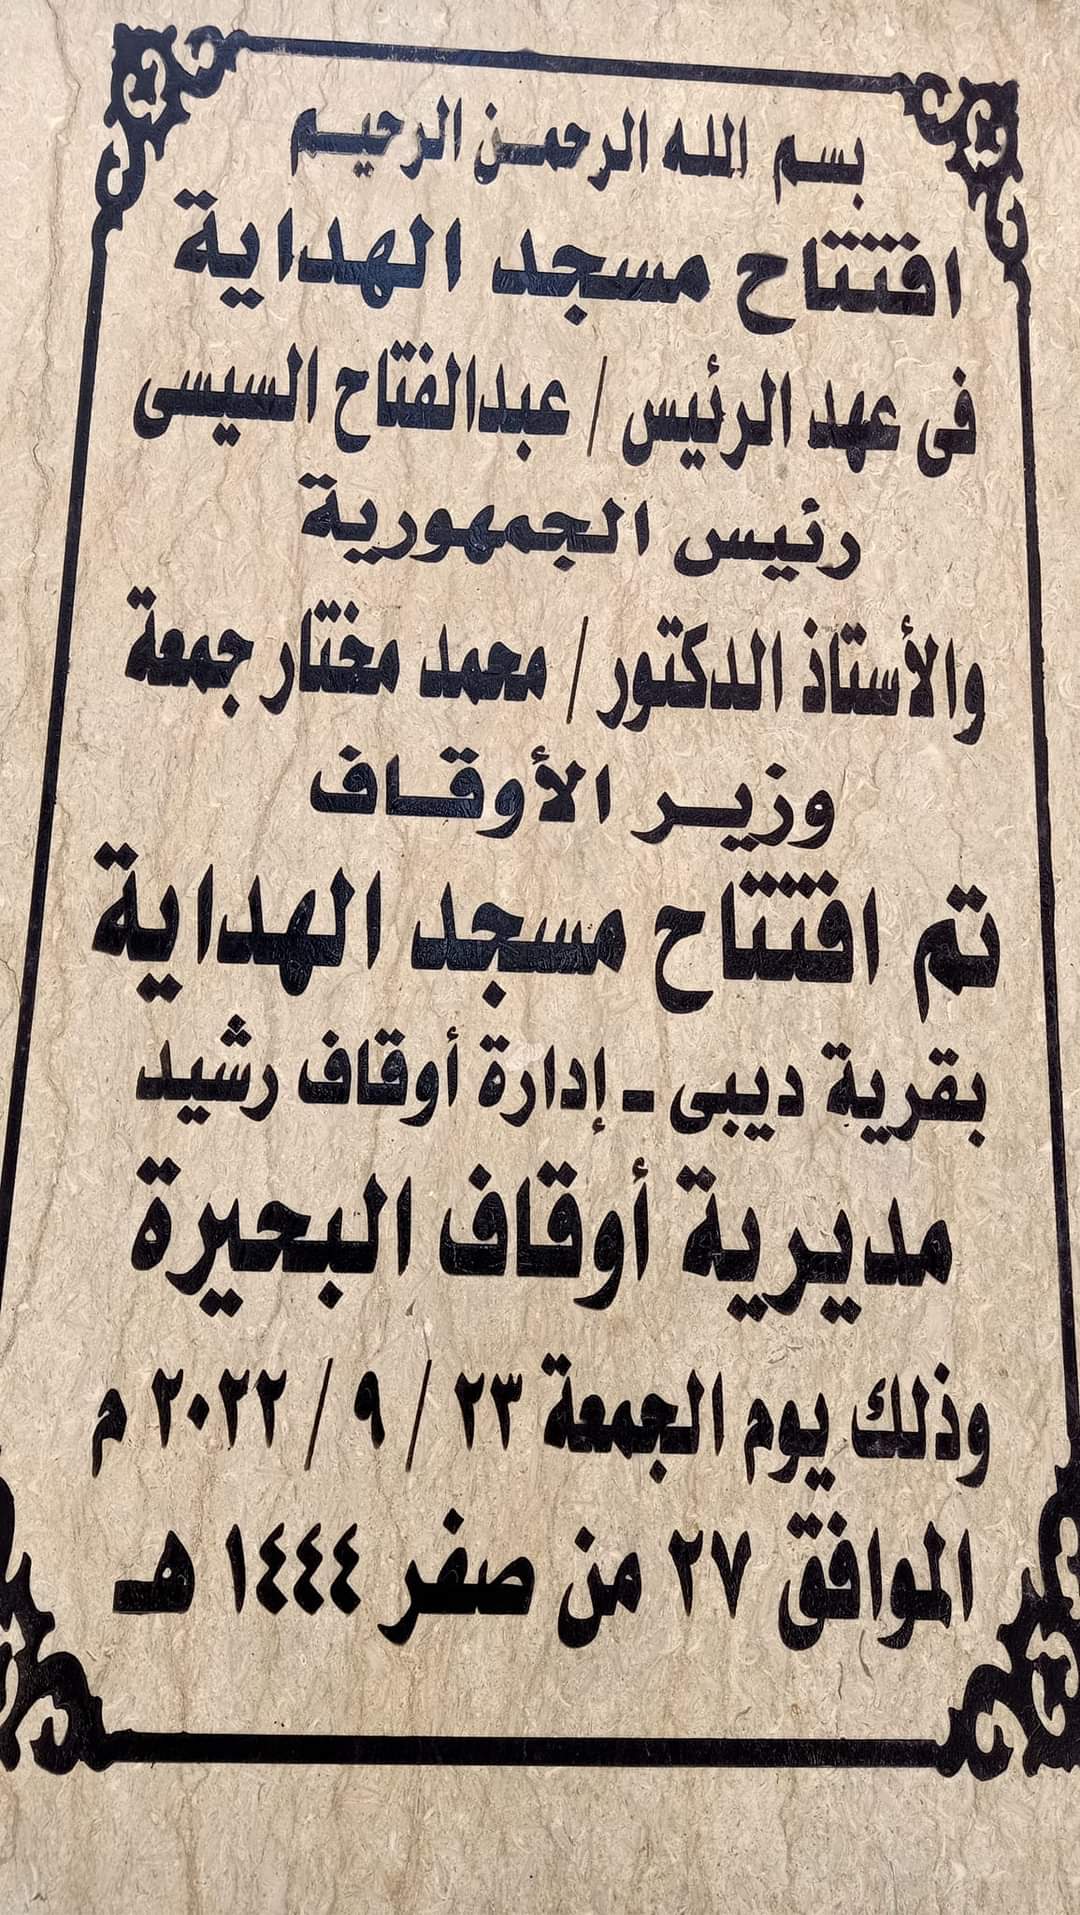 بسم الله الرحمن الرحيم
افتتاح مسجد الهداية
فى عهد الرئيس / عبدالفتاح السيسى
رئيس الجمهورية
والأستاذ الدكتور / محمد مختار جمعة
وزير الأوقاف
تم افتتاح مسجد الهداية
بقرية ديبى - إدارة أوقاف رشيد
مديرية أوقاف البحيرة
وذلك يوم الجمعة ٢٣ / ٩ / ٢٠٢٢ م
الموافق ٢٧ من صفر ١٤٤٤ هـ